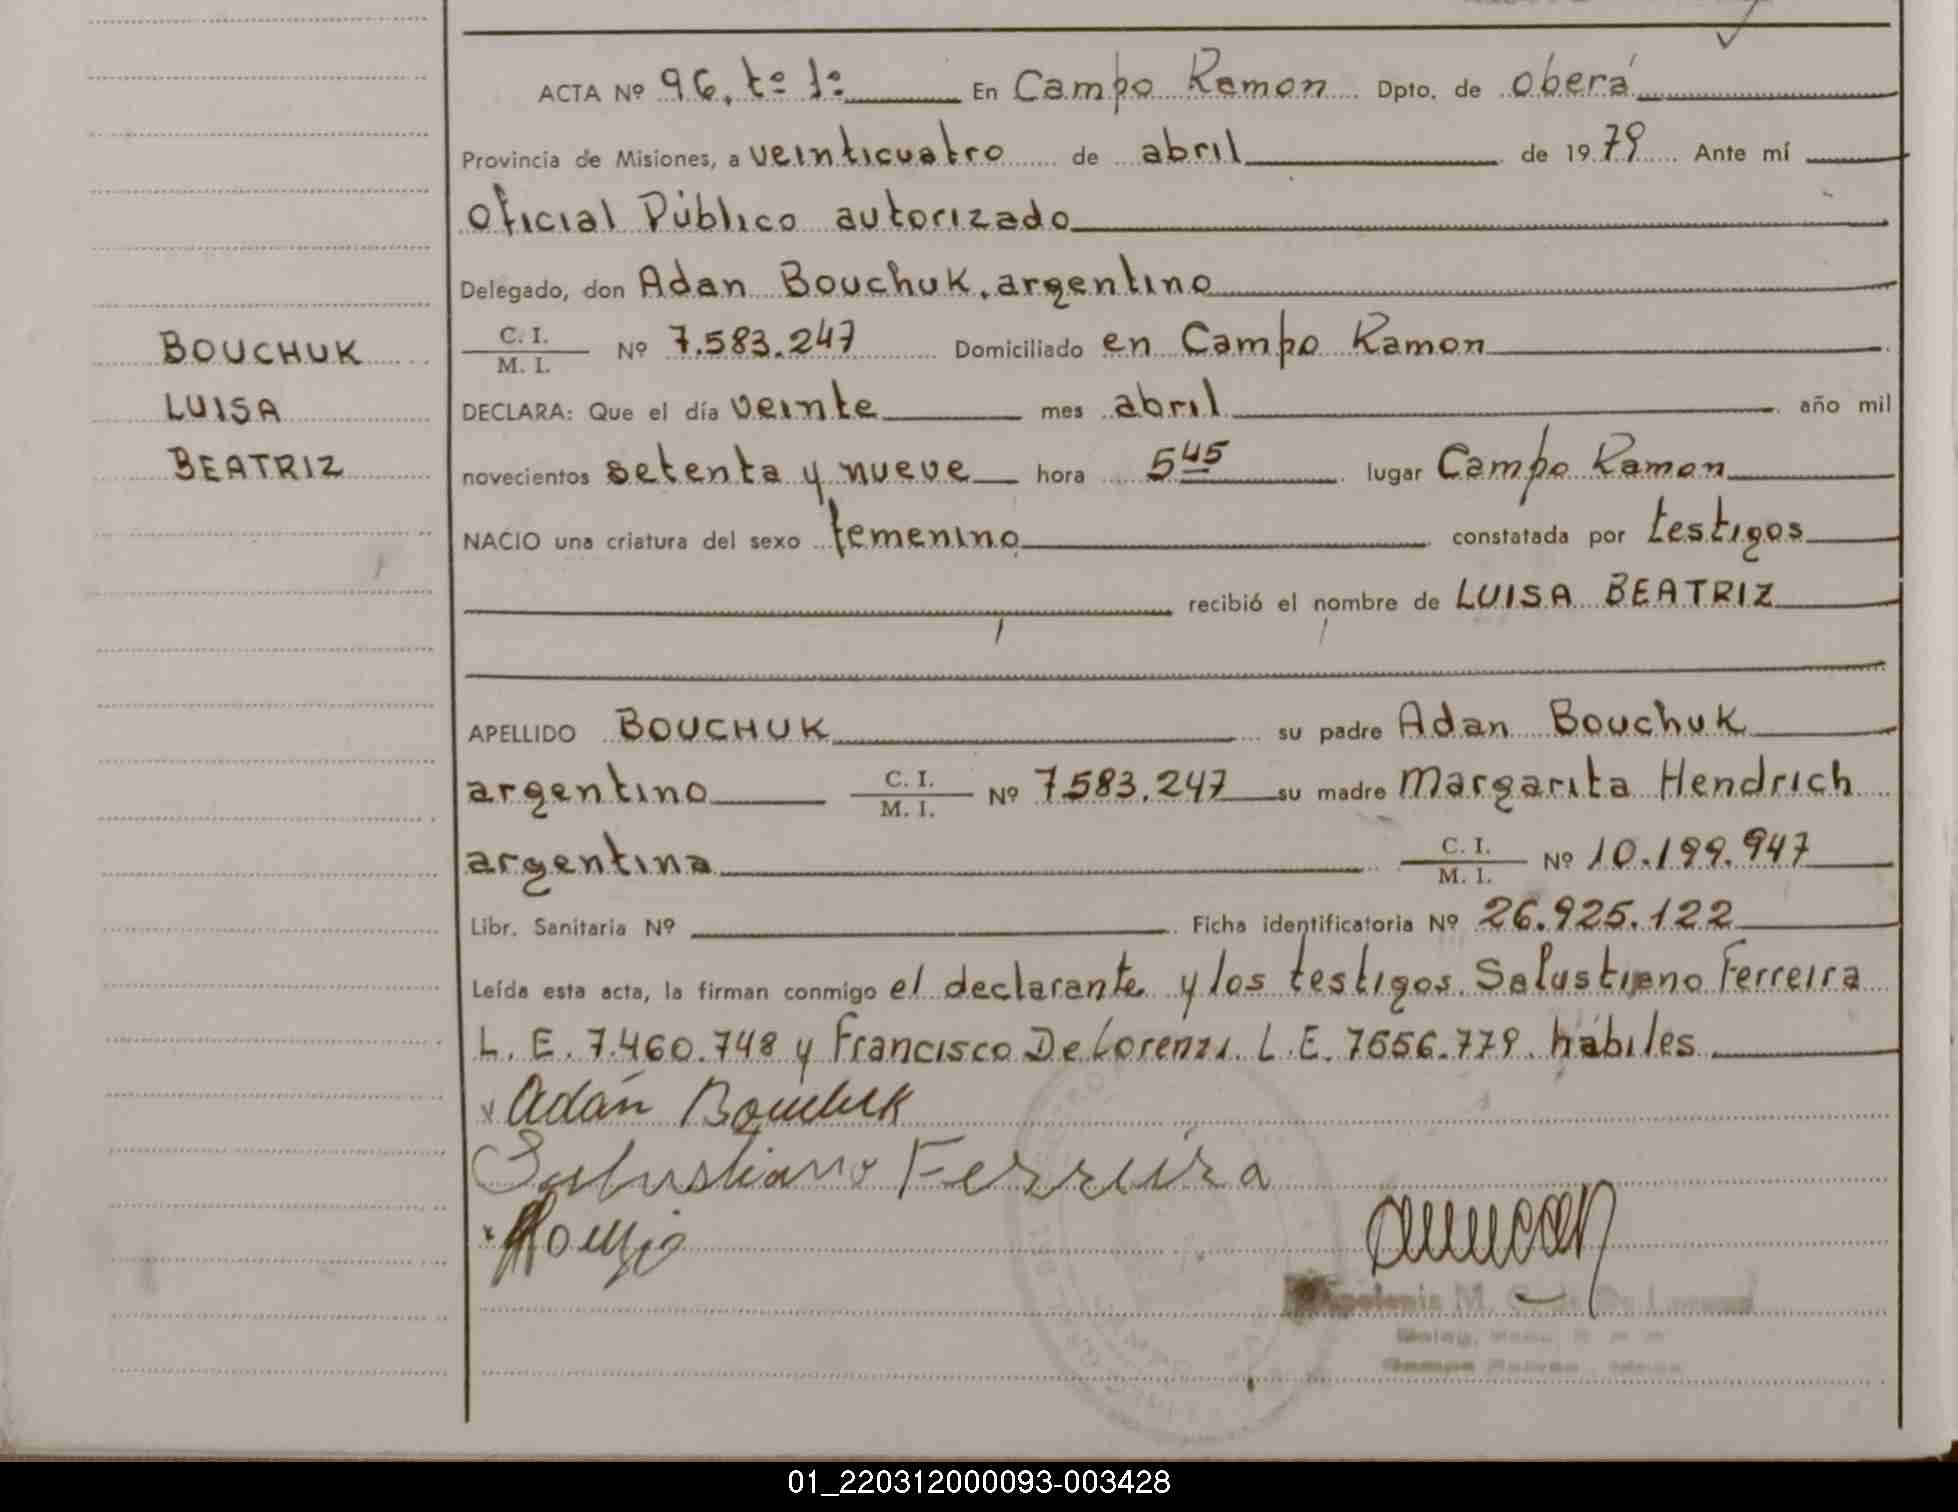 ACTA Nº 96. tº 1º En Campo Ramon Dpto. de Oberá
Provincia de Misiones, a veinticuatro de abril de 1979 Ante mí
Oficial Público autorizado
Delegado, don Adan Bouchuk. argentino
C. I.
M. I. Nº 7.583.247 Domiciliado en Campo Ramon
DECLARA: Que el día veinte mes abril año mil
novecientos setenta y nueve hora 5 45 lugar Campo Ramon
NACIO una criatura del sexo femenino constatada por testigos
recibió el nombre de LUISA BEATRIZ
BOUCHUK
LUISA
BEATRIZ
APELLIDO BOUCHUK su padre Adan Bouchuk
argentino C. I.
M. I. Nº 7.583.247 su madre Margarita Hendrich
argentina C. I.
M. I. Nº 10.199.947
Libr. Sanitaria Nº Ficha identificatoria Nº 26.925.122
Leída esta acta, la firman conmigo el declarante y los testigos. Salustiano Ferreira
L. E. 7.460.748 y Francisco De Lorenzi. L. E. 7656.779. hábiles
Adán Bouchuk
Salustiano Ferreira
01_220312000093-003428